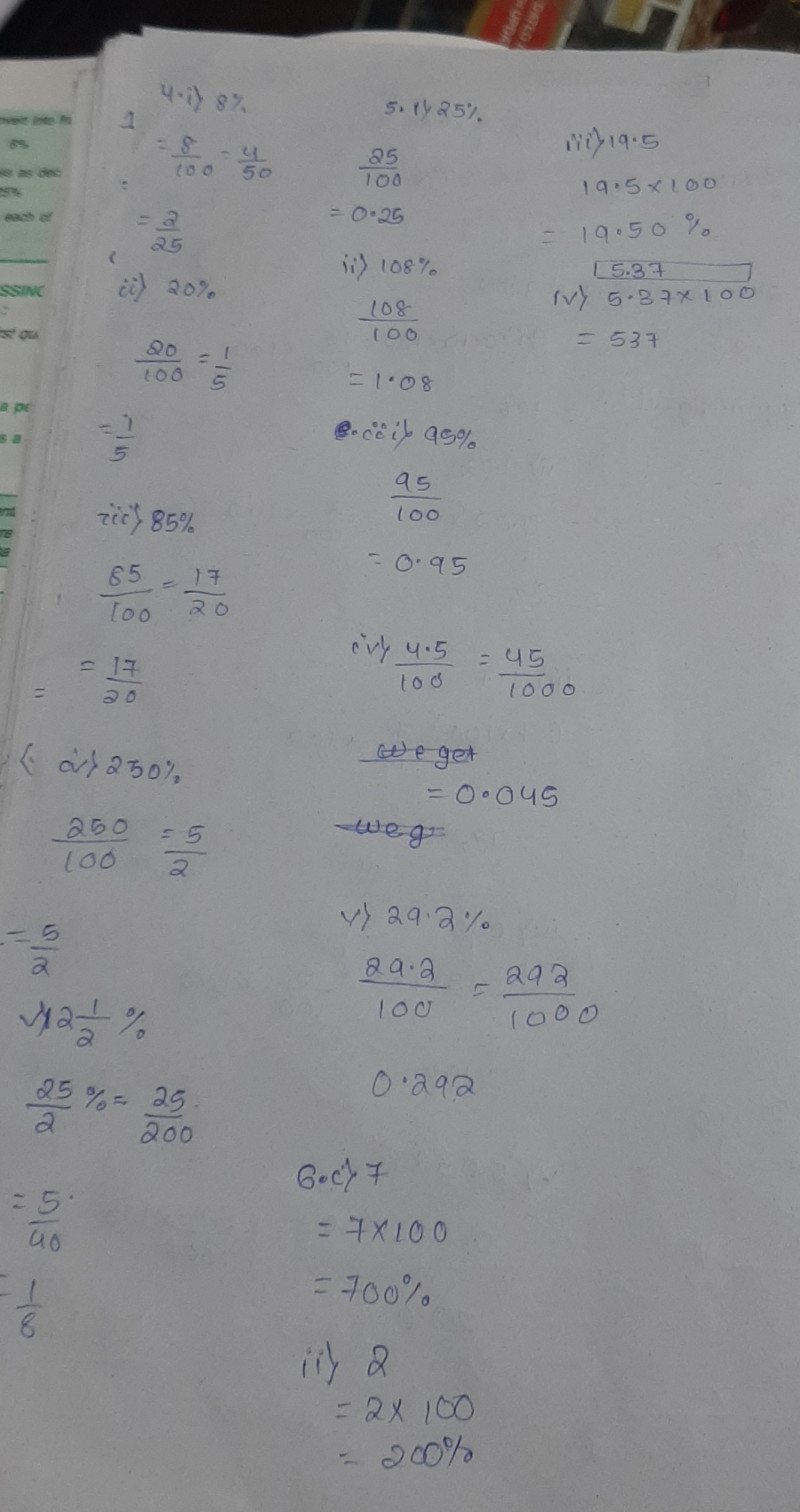 4.i) 8%
= 8/100 = 4/50
= 2/25
ii) 20%
20/100 = 1/5
= 1/5
iii) 85%
85/100 = 17/20
= 17/20
iv) 250%
250/100 = 5/2
= 5/2
v) 12 1/2 %
25/2 % = 25/200
= 5/40
= 1/8
5. i) 25%
25/100
= 0.25
ii) 108%
108/100
= 1.08
iii) 95%
95/100
= 0.95
iv) 4.5/100 = 45/1000
We get
= 0.045
We g
v) 29.2%
29.2/100 = 292/1000
0.292
6.i) 7
= 7×100
= 700%
ii) 2
= 2× 100
= 200%
iii) 19.5
19.5×100
= 19.50 %
5.37
iv) 5.37×100
= 537